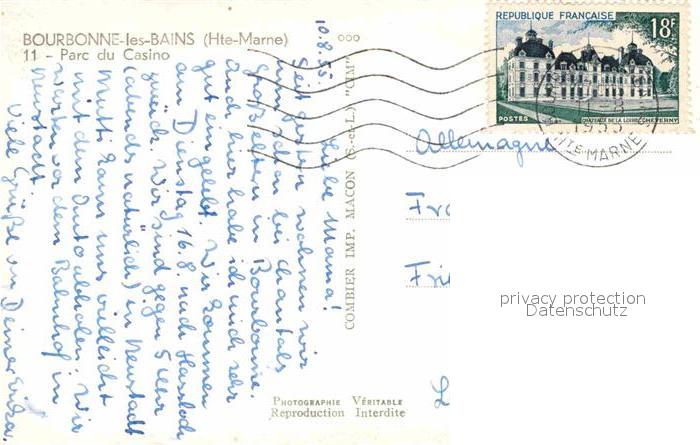 BOURBONNE-les-BAINS (Hte-Marne)
11 - Parc du Casino
10.8.55.
Liebe Mama!
Seit gestern wohnen wir
nun schon bei Chantals
Großeltern in Bourbonne.
Auch hier habe ich mich sehr
gut eingelebt. Wir kommen
am Dienstag 16.8. nach
zurück. Wir sind gegen 5 Uhr
(abends natürlich) in Neustadt
Mutti kann uns vielleicht
mit dem Auto abholen. Wir
warten vor dem Bahnhof in
Neustadt.
Viele Grüße von Deiner
COMBIER IMP. MACON (S.-et-L.) "CIM"
PHOTOGRAPHIE VÉRITABLE
Reproduction Interdite
RÉPUBLIQUE FRANÇAISE
18F
POSTES
CHÂTEAUX DE LA LOIRE: CHEVERNY
1955
HTE MARNE
Allemagne
Fr
Fri
privacy protection
Datenschutz